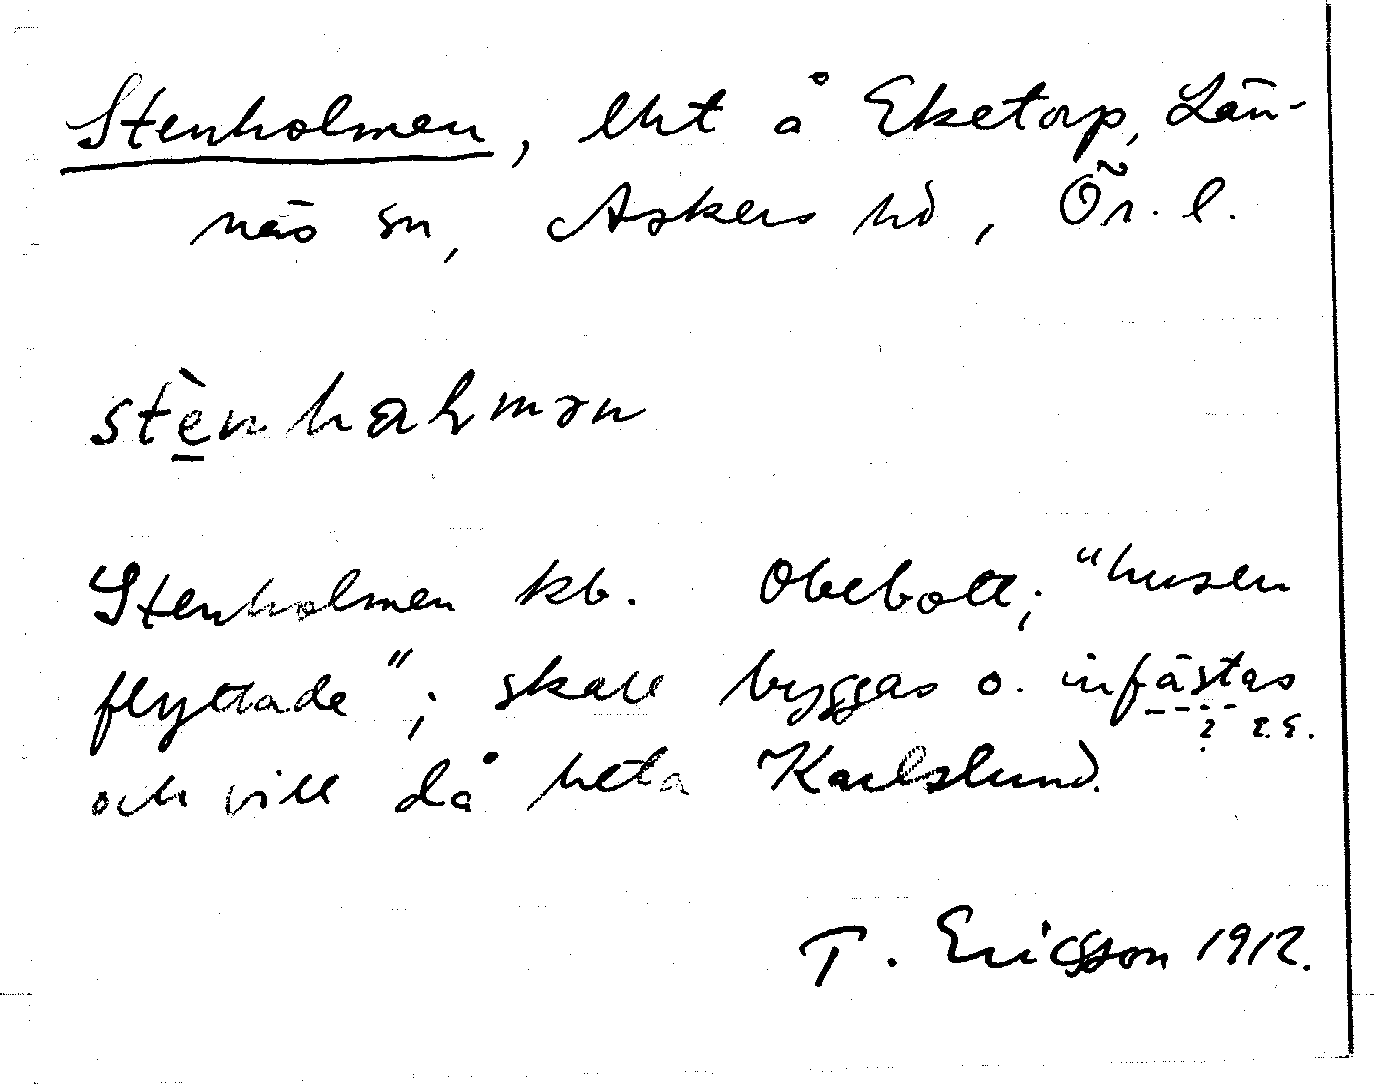 Stenholmen, lht å Eketorp, Län-
näs sn, Askers hd, Ör. l.
stènhalmən
Stenholmen kb. Obebott; "husen
flyttade"; skall byggas o. infästas
? R.S.
och vill då heta Karlslund.
T. Ericsson 1912.